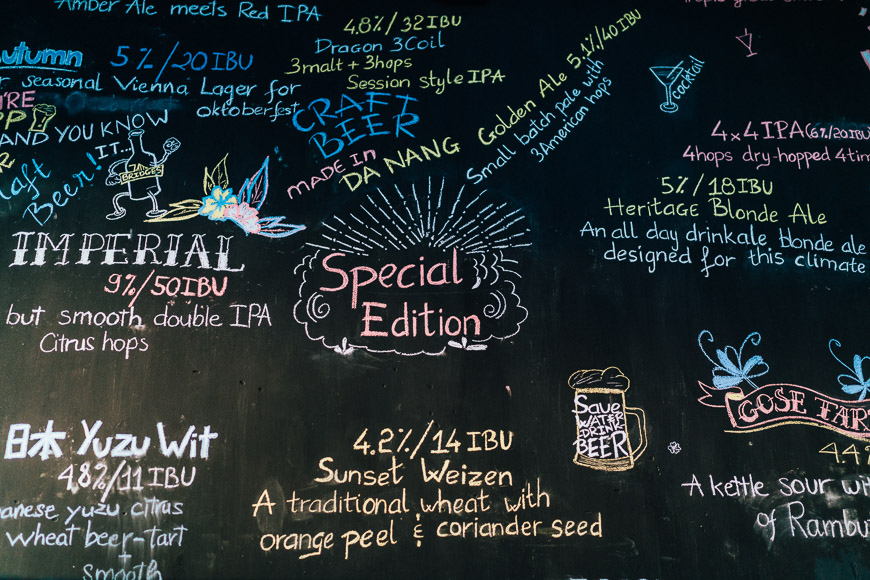 Amber Ale meets Red IPA
4.8%/32 IBU
Dragon 3Coil
3malt + 3hops
Session style IPA
utumn 5%/20 IBU
r seasonal Vienna Lager for
oktoberfest
CRAFT
BEER
MADE IN
DA NANG
Golden Ale 5.1%/40 IBU
Small batch pale with
3American hops
cocktail
'RE
PP
AND YOU KNOW
IT...
raft
Beer!
7
BRIDGES
4x4 IPA (6%/20IBU
4hops dry-hopped 4tim
5%/18IBU
Heritage Blonde Ale
An all day drinkale blonde ale
designed for this climate
IMPERIAL
9%/50IBU
but smooth double IPA
Citrus hops
Special
Edition
SAVE
WATER
DRINK
BEER
GOSE TAR
4.4
A kettle sour wit
of Rambu
日本 Yuzu Wit
4.8%/11 IBU
anese yuzu citrus
wheat beer-tart
+
smooth
4.2%/14 IBU
Sunset Weizen
A traditional wheat with
orange peel & coriander seed